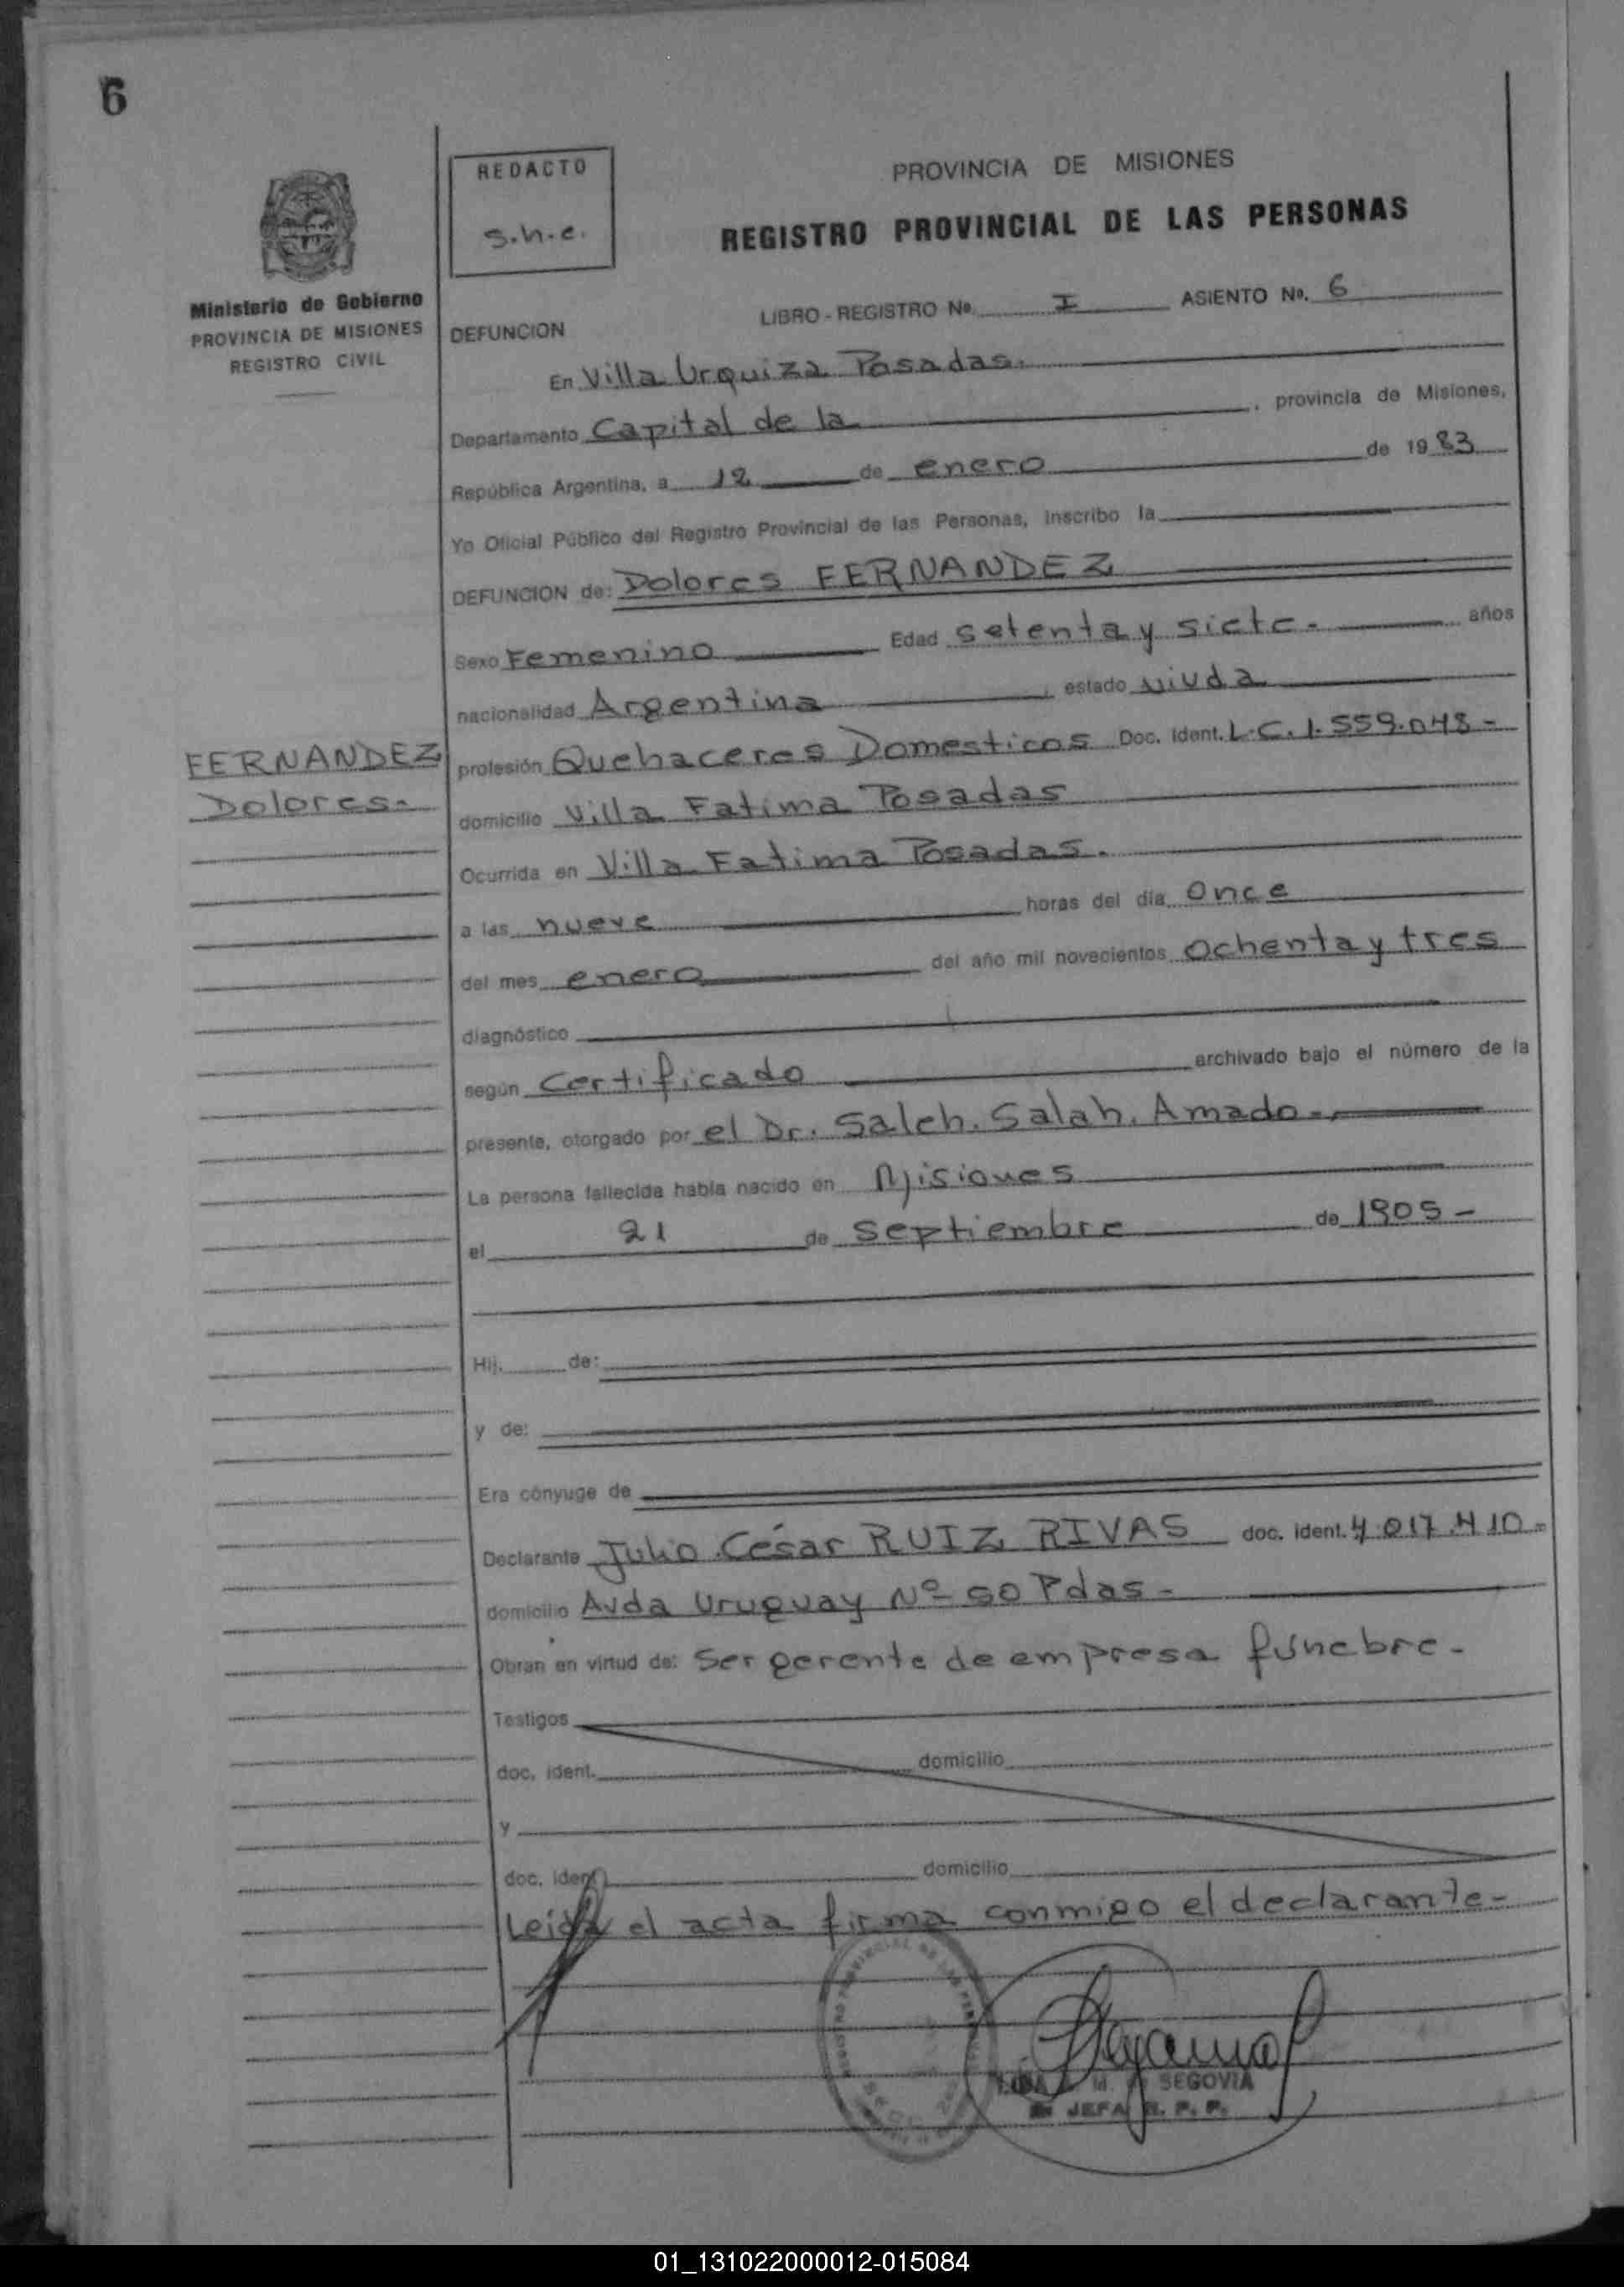 6
REDACTO
s.h.e.
Ministerio de Gobierno
PROVINCIA DE MISIONES
REGISTRO CIVIL
PROVINCIA DE MISIONES
REGISTRO PROVINCIAL DE LAS PERSONAS
LIBRO - REGISTRO No. I ASIENTO No. 6
DEFUNCION
En Villa Urquiza Posadas.
Departamento Capital de la , provincia de Misiones,
República Argentina, a 12 de enero de 1983
Yo Oficial Público del Registro Provincial de las Personas, inscribo la
DEFUNCION de: Dolores FERNANDEZ
Sexo Femenino Edad setenta y siete. años
nacionalidad Argentina , estado viuda
FERNANDEZ
Dolores.
profesión Quehaceres Domesticos Doc. Ident. L.C. 1.559.048-
domicilio Villa Fatima Posadas
Ocurrida en Villa Fatima Posadas.
a las nueve horas del día once
del mes enero del año mil novecientos ochenta y tres
diagnóstico
según certificado archivado bajo el número de la
presente, otorgado por el Dr. Saleh. Salah. Amado.
La persona fallecida había nacido en Misiones
el 21 de septiembre de 1905-
Hij. de:
y de:
Era cónyuge de
Declarante Julio César RUIZ RIVAS doc. ident. 4.017.410-
domicilio Avda Uruguay Nº 50 Pdas-
Obran en virtud de: Ser gerente de empresa fúnebre-
Testigos
doc. ident. domicilio
y
doc. ident. domicilio
Leída el acta firma conmigo el declarante-
M. SEGOVIA
JEFA R. P. P.
01_131022000012-015084